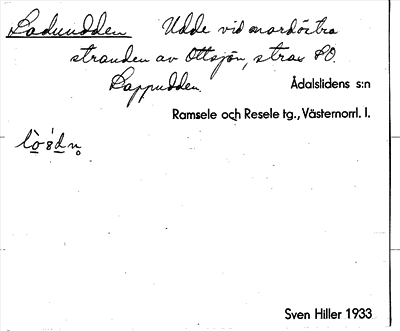 Laduudden Udde vid nordöstra
stranden av Ottsjön, strax SO.
Lappudden.
Ådalslidens s:n
Ramsele och Resele tg., Västernorrl. l.
Sven Hiller 1933